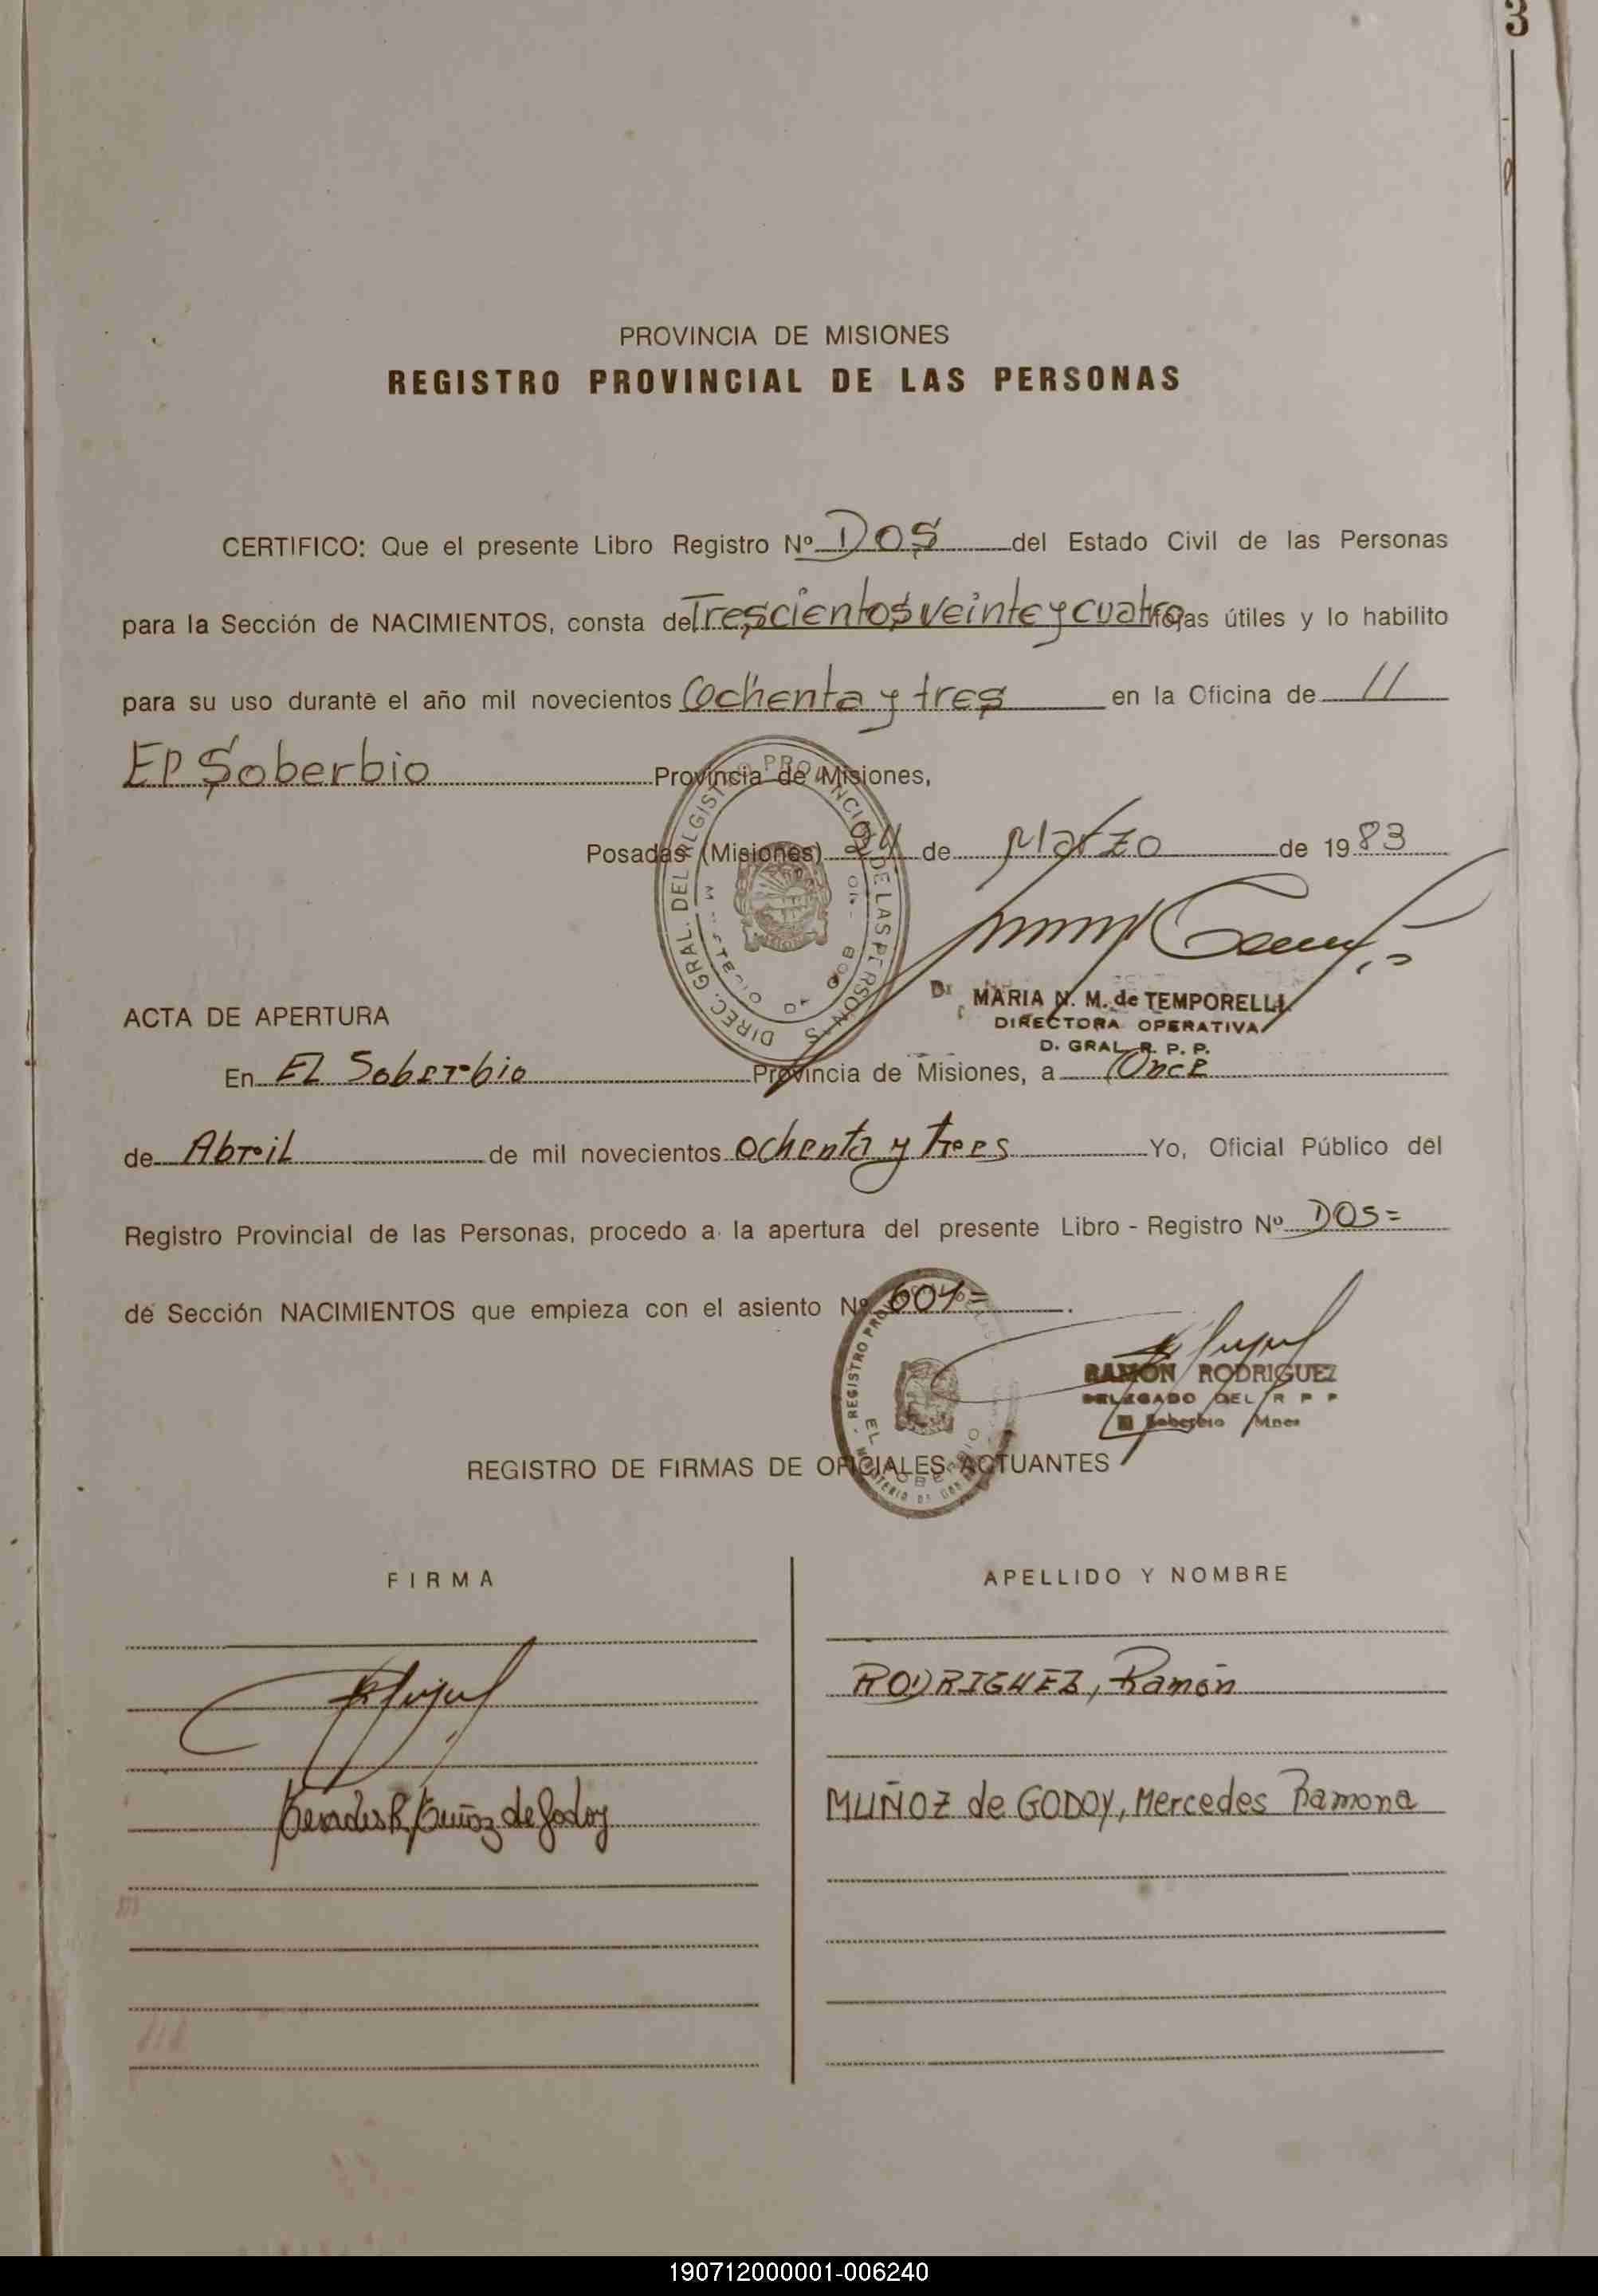 PROVINCIA DE MISIONES
REGISTRO PROVINCIAL DE LAS PERSONAS
CERTIFICO: Que el presente Libro Registro Nº DOS del Estado Civil de las Personas
para la Sección de NACIMIENTOS, consta de Trescientos veinte y cuatro fojas útiles y lo habilito
para su uso durante el año mil novecientos ochenta y tres en la Oficina de //
El Soberbio Provincia de Misiones,
Posadas (Misiones) de Marzo de 1983
MARIA N. M. de TEMPORELLI
DIRECTORA OPERATIVA
D. GRAL. R. P. P.
ACTA DE APERTURA
En El Soberbio Provincia de Misiones, a Once
de Abril de mil novecientos ochenta y tres Yo, Oficial Público del
Registro Provincial de las Personas, procedo a la apertura del presente Libro - Registro Nº DOS=
de Sección NACIMIENTOS que empieza con el asiento Nº 601=
RAMON RODRIGUEZ
DELEGADO DEL R P P
El Soberbio Mnes
REGISTRO DE FIRMAS DE OFICIALES ACTUANTES
FIRMA APELLIDO Y NOMBRE
RODRIGUEZ, Ramón
Mercedes R. Muñoz de Godoy MUÑOZ de GODOY, Mercedes Ramona
190712000001-006240